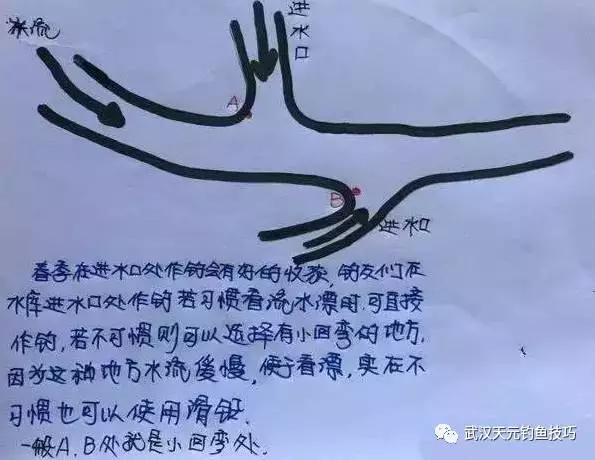 水流
进水口
A
B
进水口
春季在进水口处作钓会有好的收获,钓友们在
水库进水口处作钓若习惯看流水漂时.可直接
作钓,若不习惯则可以选择有小回弯的地方.
因为这种地方水流缓慢,便于看漂,实在不
习惯也可以使用滑铅.
一般A.B处就是小回弯处.
武汉天元钓鱼技巧